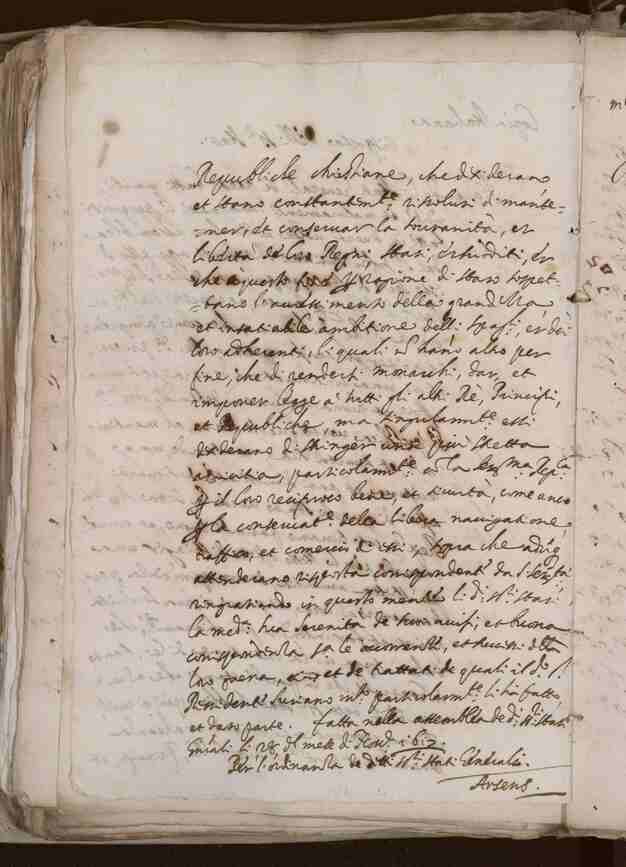 Republiche christiane, che desiderano
et stano constantemte. risoluti di mante=
=ner, et conservar la souranità, et
libertà de loro Regni, stati, et sudditi, et
che à questo fine per ragione di stato sospet=
=tano l'avanzamento della grandezza
et insatiabile ambitione delli spag.li, et dei
loro adherenti, li quali n hano altro per
fine, che di rendersi monarchi, dar, et
imponer legge à tutti gli altri Rè, Principi,
et Republiche, ma singularmte. essi
desiderano di stringer una più stretta
amicitia, particolarmte. con la Serma. Repca.
per il loro reciproco bene, et sicurtà, come anco
per la conservate. della libera navigatione,
traffico, et comercio di essi, sopra che
attenderano risposta correspondente da S. Sertà
ringratiando in questo mentre li di. Sri. stati
la meda. sua serenità de suoi avisi, et buona
corrispondenza le occorrenze, et successi della
loro guerra, et de trattati de quali il do. Sr.
Residente Suriano particolarmte. li hà fatto,
et dato parte. Fatta nella assemblea de di. Sri. stati
Gnrali li 28 del mese di 162
Per l'ordinanza de ditti Sri. stati Generali.
Arsens.